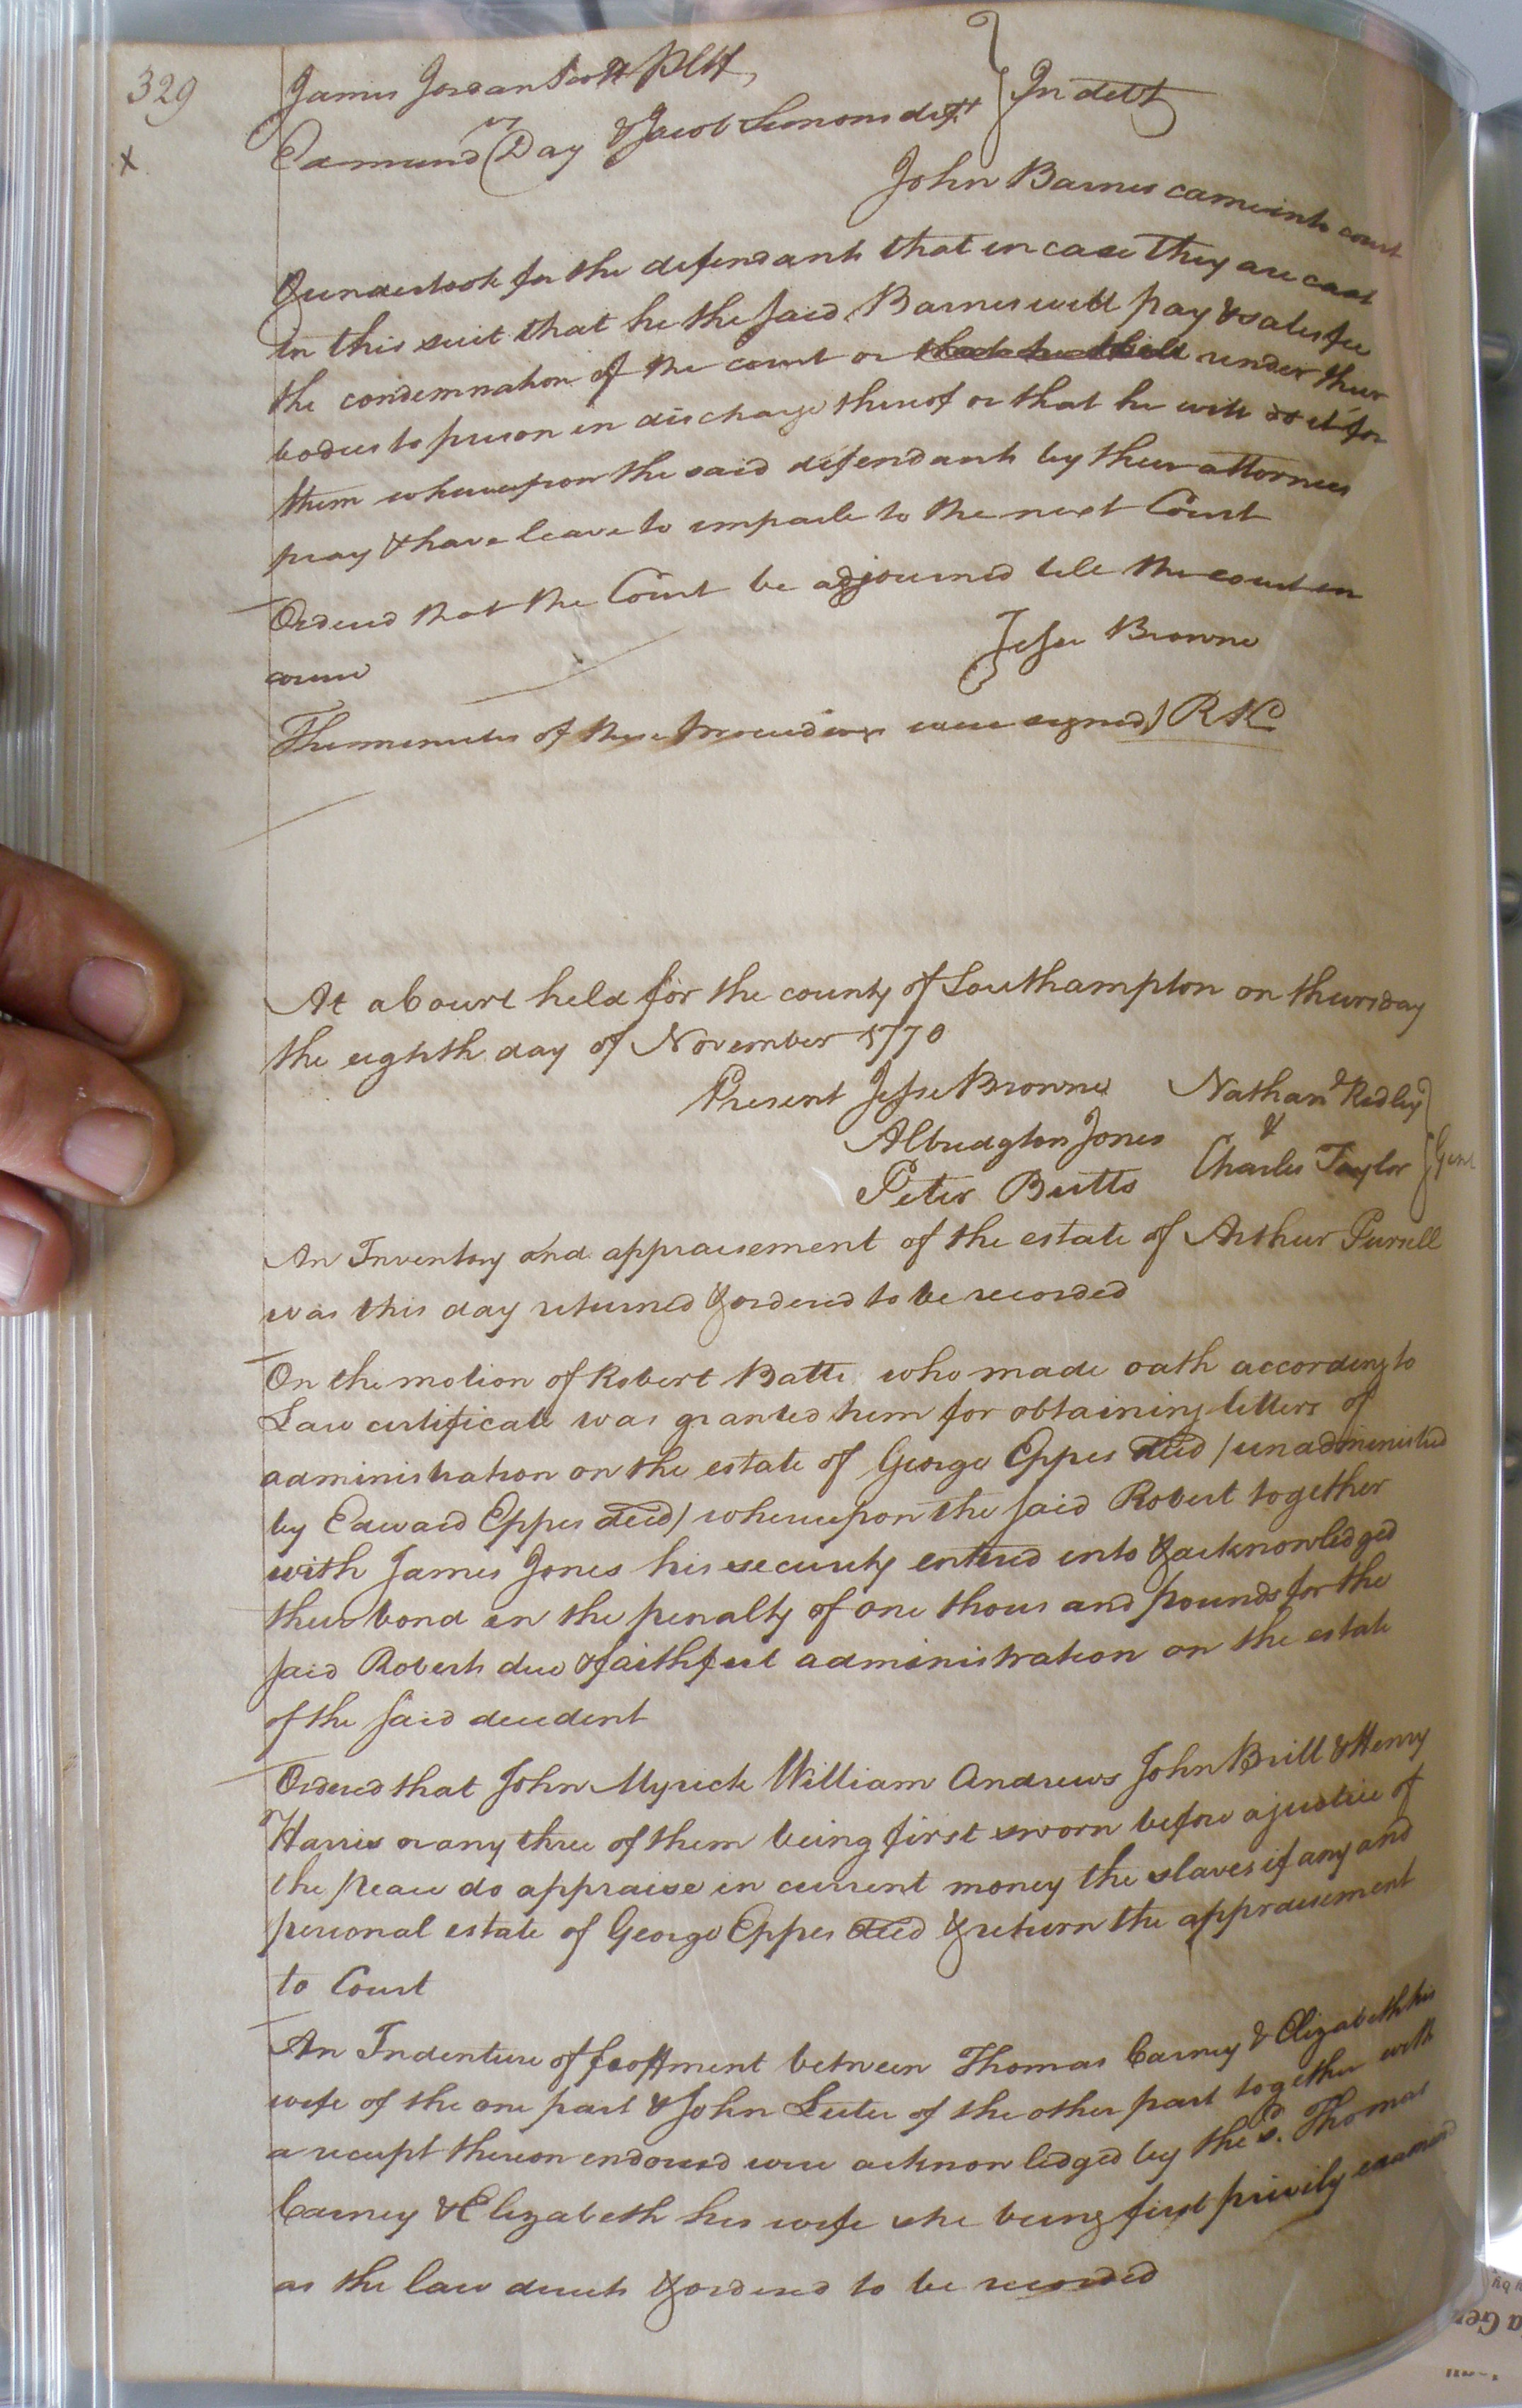 329
James Jordan Scott Pltf,
vs
Edmund Day & Jacob Simons deft
In debt
x
John Barnes came into court
& undertook for the defendants that in case they are cast
in this suit that he the said Barnes will pay & satisfie
the condemnation of the court or render their
bodies to prison in discharge thereof or that he will do it for
them whereupon the said defendants by their attornies
pray & have leave to imparle to the next Court
Ordered that the Court be adjourned till the court in
course
Jesse Browne
The minutes of these proceedings were signed) R K
At a Court held for the county of Southampton on thursday
the eighth day of November 1770
Present Jesse Browne Nathanl Ridley
Albridgton Jones &
Peter Butts Charles Taylor Gent
An Inventory and appraisement of the estate of Arthur Pursell
was this day returned & ordered to be recorded
On the motion of Robert Batte who made oath according to
Law certificate was granted him for obtaining letters of
administration on the estate of George Eppes decd / unadministred
by Edward Eppes decd) whereupon the said Robert together
with James Jones his security entered into & acknowledged
their bond in the penalty of one thousand pounds for the
said Roberts due & faithfull administration on the estate
of the said decedent
Ordered that John Myrick William Andrews John Britt & Henry
Harris or any three of them being first sworn before a justice of
the peace do appraise in current money the slaves if any and
personal estate of George Eppes decd & return the appraisement
to Court
An Indenture of feoffment between Thomas Carney & Elizabeth his
wife of the one part & John Luter of the other part together with
a receipt thereon endorsed were acknowledged by the sd. Thomas
Carney & Elizabeth his wife she being first privily examined
as the law directs & ordered to be recorded